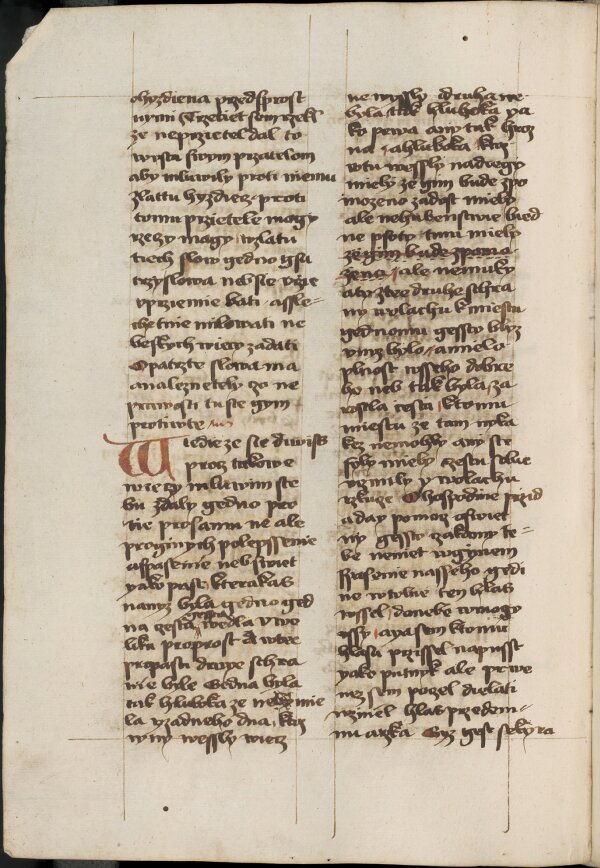 ohyzdiena przed sprost
nymi Trzebet sem rzekl
ze neprzietel dal to
wssia swym przatelom
aby mluwily proti niemu
zlattu hyzdiez proti
tomu przietele mogy
rzeczy magy w zlatu
tiech slow gedno gsu
trzy slowa neb sie
vprziemie bati a sle
chetnie milowati ne
beskych wieczy zadati
Opatrzte slowa ma
a naleznetely czo ne
prawosti tu sie gym
protiwte
Wiedieze sie diwiss
proz takowe
wieczy mluwim sie
bu zdaly gedno pro
tie prosamu ne ale
pro ginych polepssenie
a spasenie neb swiet
yako past kterakas
namz byla gedno ged
na czesta wedla v we
liku proprost A w tee
propasti dwie schra
nie bile Gedna byla
tak hluboka ze neby nie
la y zadneho dna ktoz
w ny wessly wiecz
ne wyssly a druha ne
byla tak hluboka ya
ko prwa any tak hroz
na a hluboka ktoz
w tu wessly nadiegy
miely ze gim bude spo
mozeno zadost miely
ale nehubenstwie bied
ne psoty tmu miely
ze gim bude zpoma
zeno ale nemuky
a ty ztee druhe schra
ny wolachu k miestu
gednomu gessto blyz
v nyz bylo a mielo
plnost wsseho dobre
ho neb tak byla za
rostla cesta k tomu
miestu ze tam nyka
kez nemohly any sie
syly miely czestu
wzmily y wolachu
rzkuze O hospodine przid
a day pomocz oswiet
ny gessto zakony te
be neniet w gynem
spasenie nasseho gedi
ne w tobie ten hlas
wssel do nebe w mogy
vssy a ya sem k tomu
hlasu przissel naprsst
yako putnyk ale prwe
nez sem poczel dielati
wzniel hlas przedem
nu arzka Gyz gest sekyra